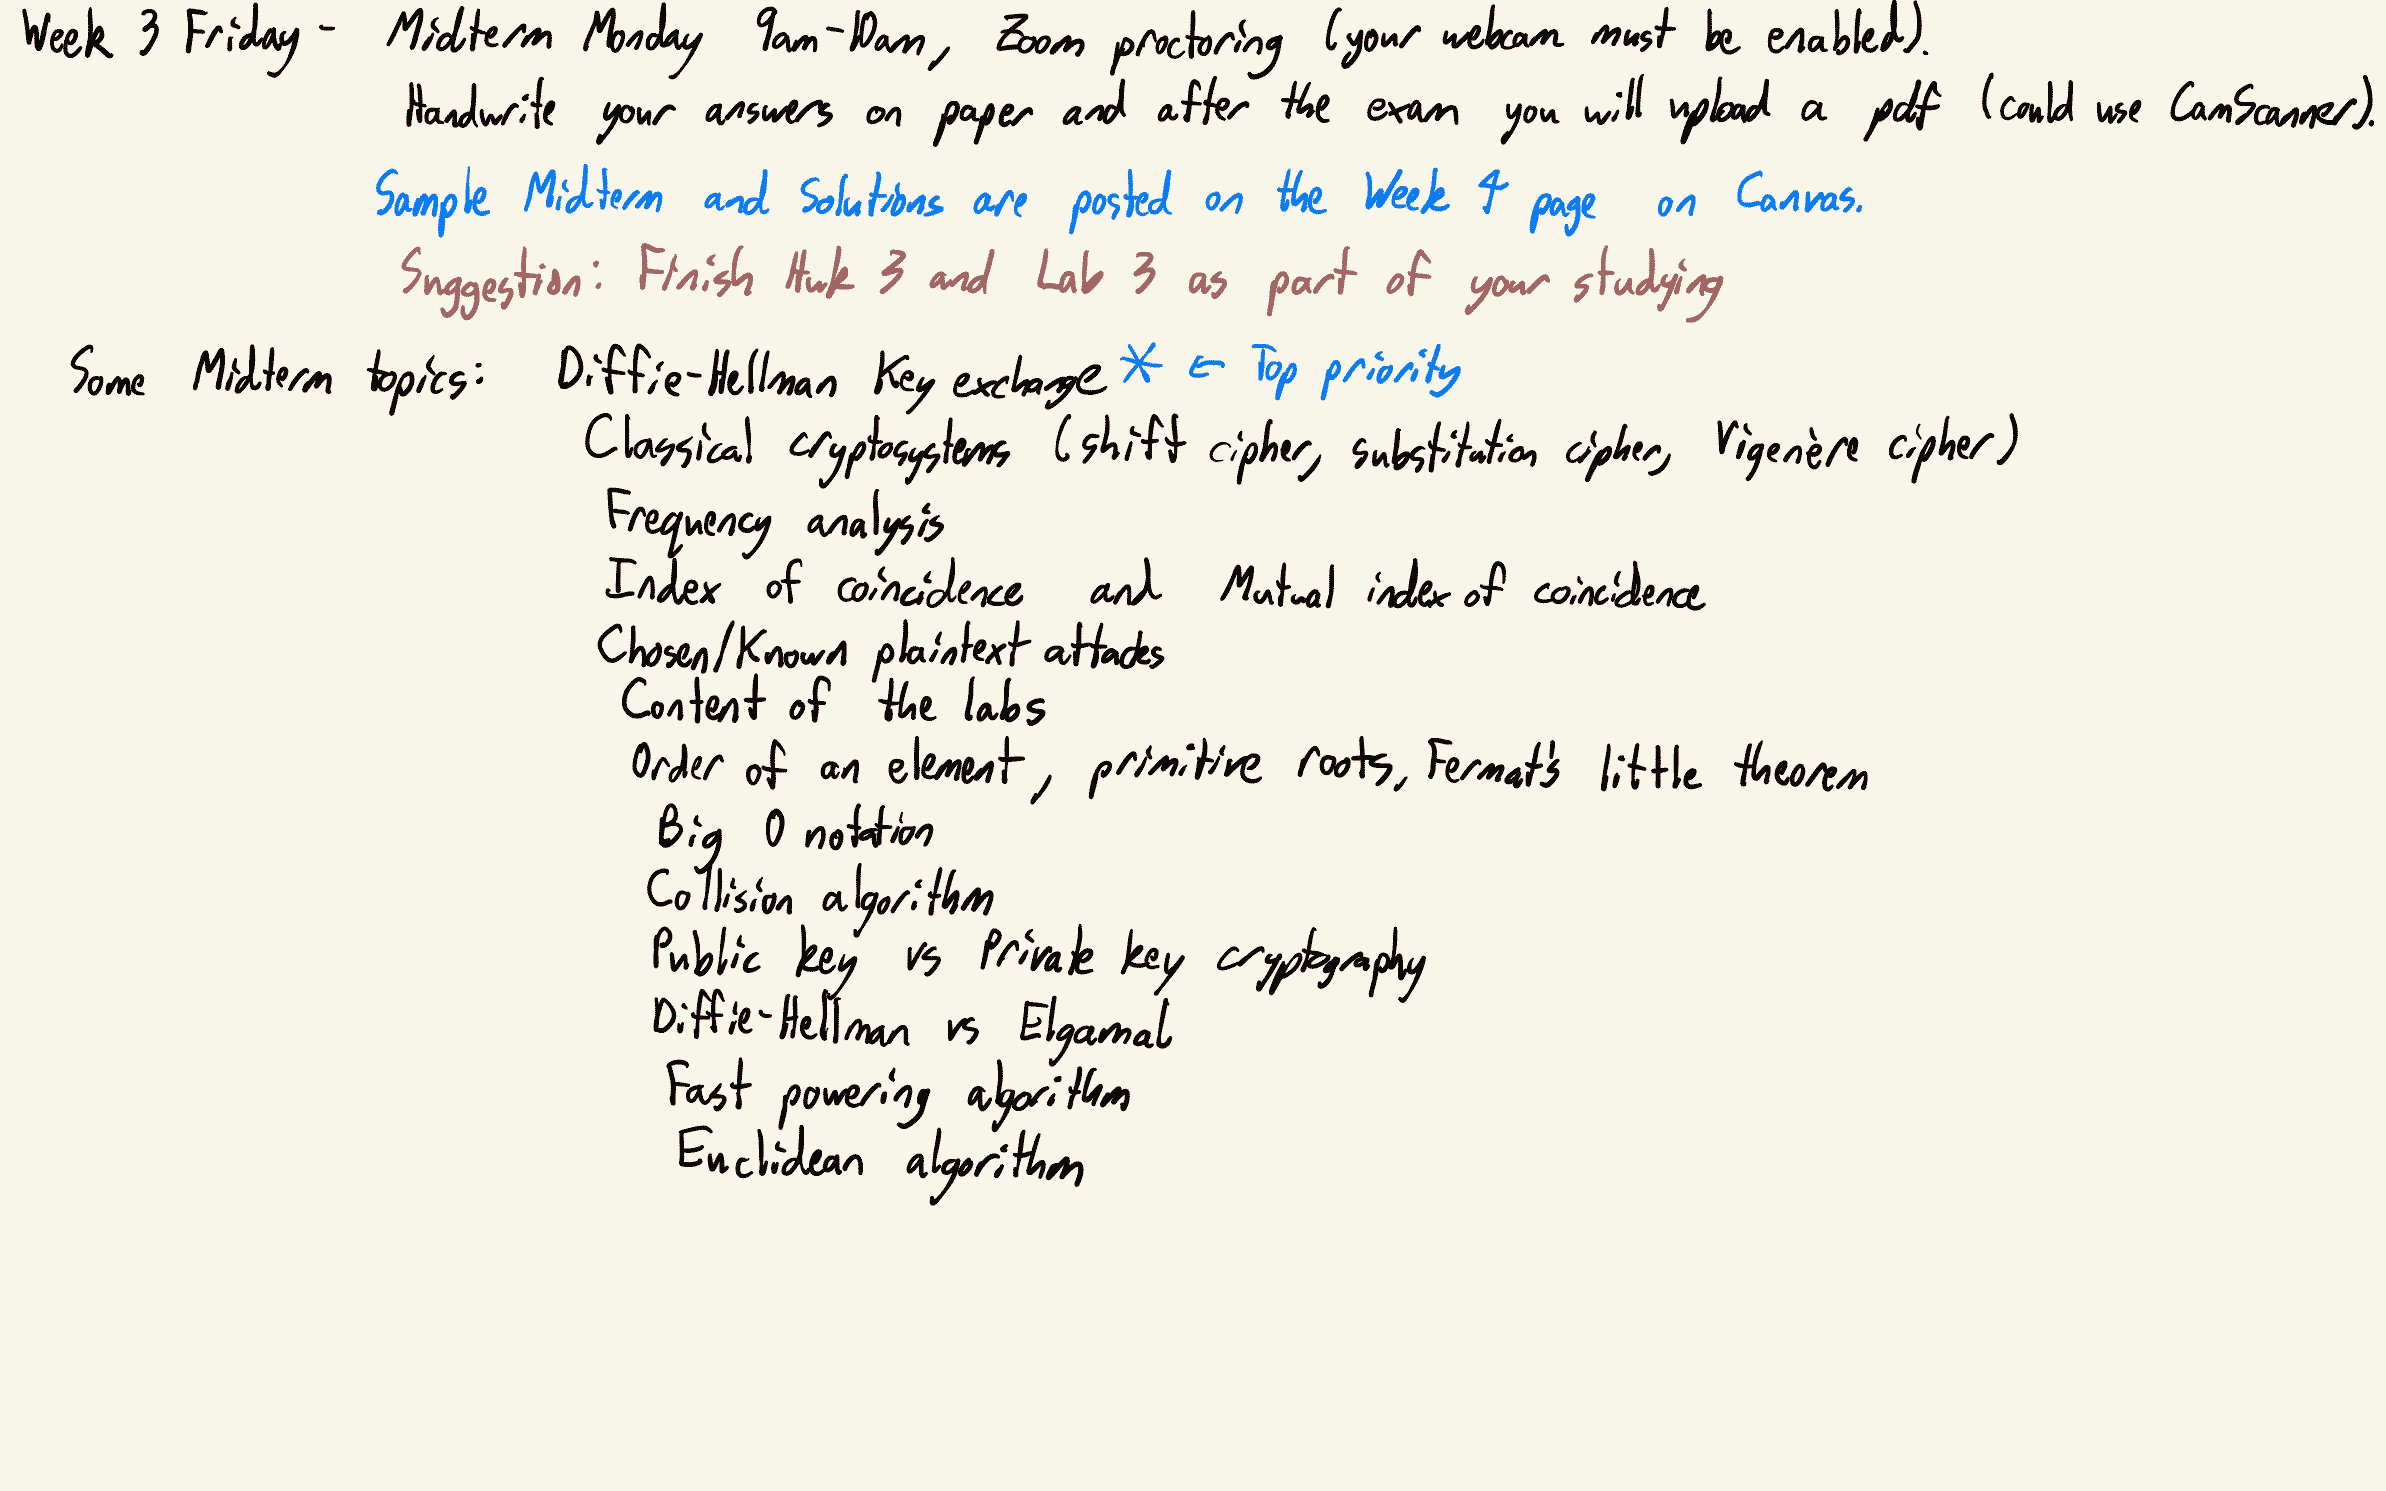 Week 3 Friday - Midterm Monday 9am-10am, Zoom proctoring (your webcam must be enabled).
Handwrite your answers on paper and after the exam you will upload a pdf (could use CamScanner).
Sample Midterm and Solutions are posted on the Week 4 page on Canvas.
Suggestion: Finish Hwk 3 and Lab 3 as part of your studying
Some Midterm topics: Diffie-Hellman Key exchange * ← Top priority
Classical cryptosystems (shift cipher, substitution cipher, Vigenère cipher)
Frequency analysis
Index of coincidence and Mutual index of coincidence
Chosen/Known plaintext attacks
Content of the labs
Order of an element, primitive roots, Fermat's little theorem
Big O notation
Collision algorithm
Public key vs Private key cryptography
Diffie-Hellman vs Elgamal
Fast powering algorithm
Euclidean algorithm